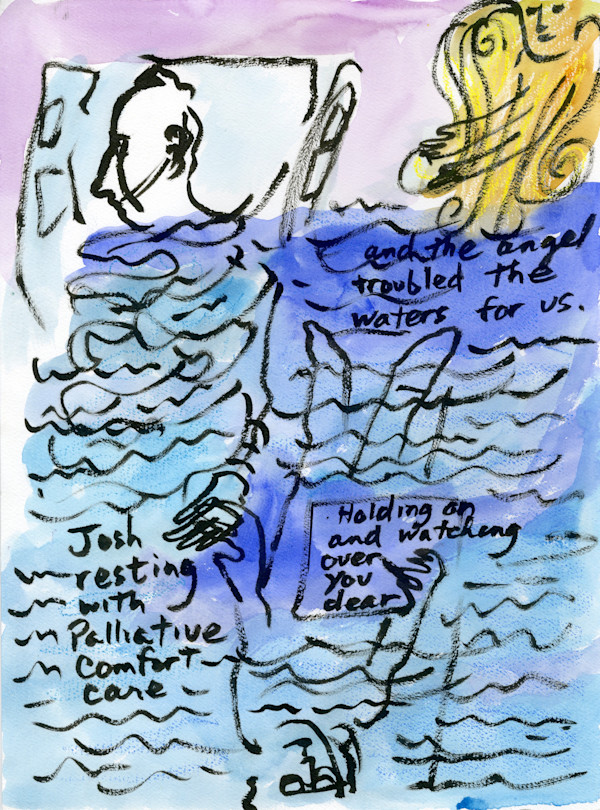 and the angel
troubled the
waters for us.
Holding on
and watching
over
you
dear
Josh
resting
with
Palliative
comfort
care